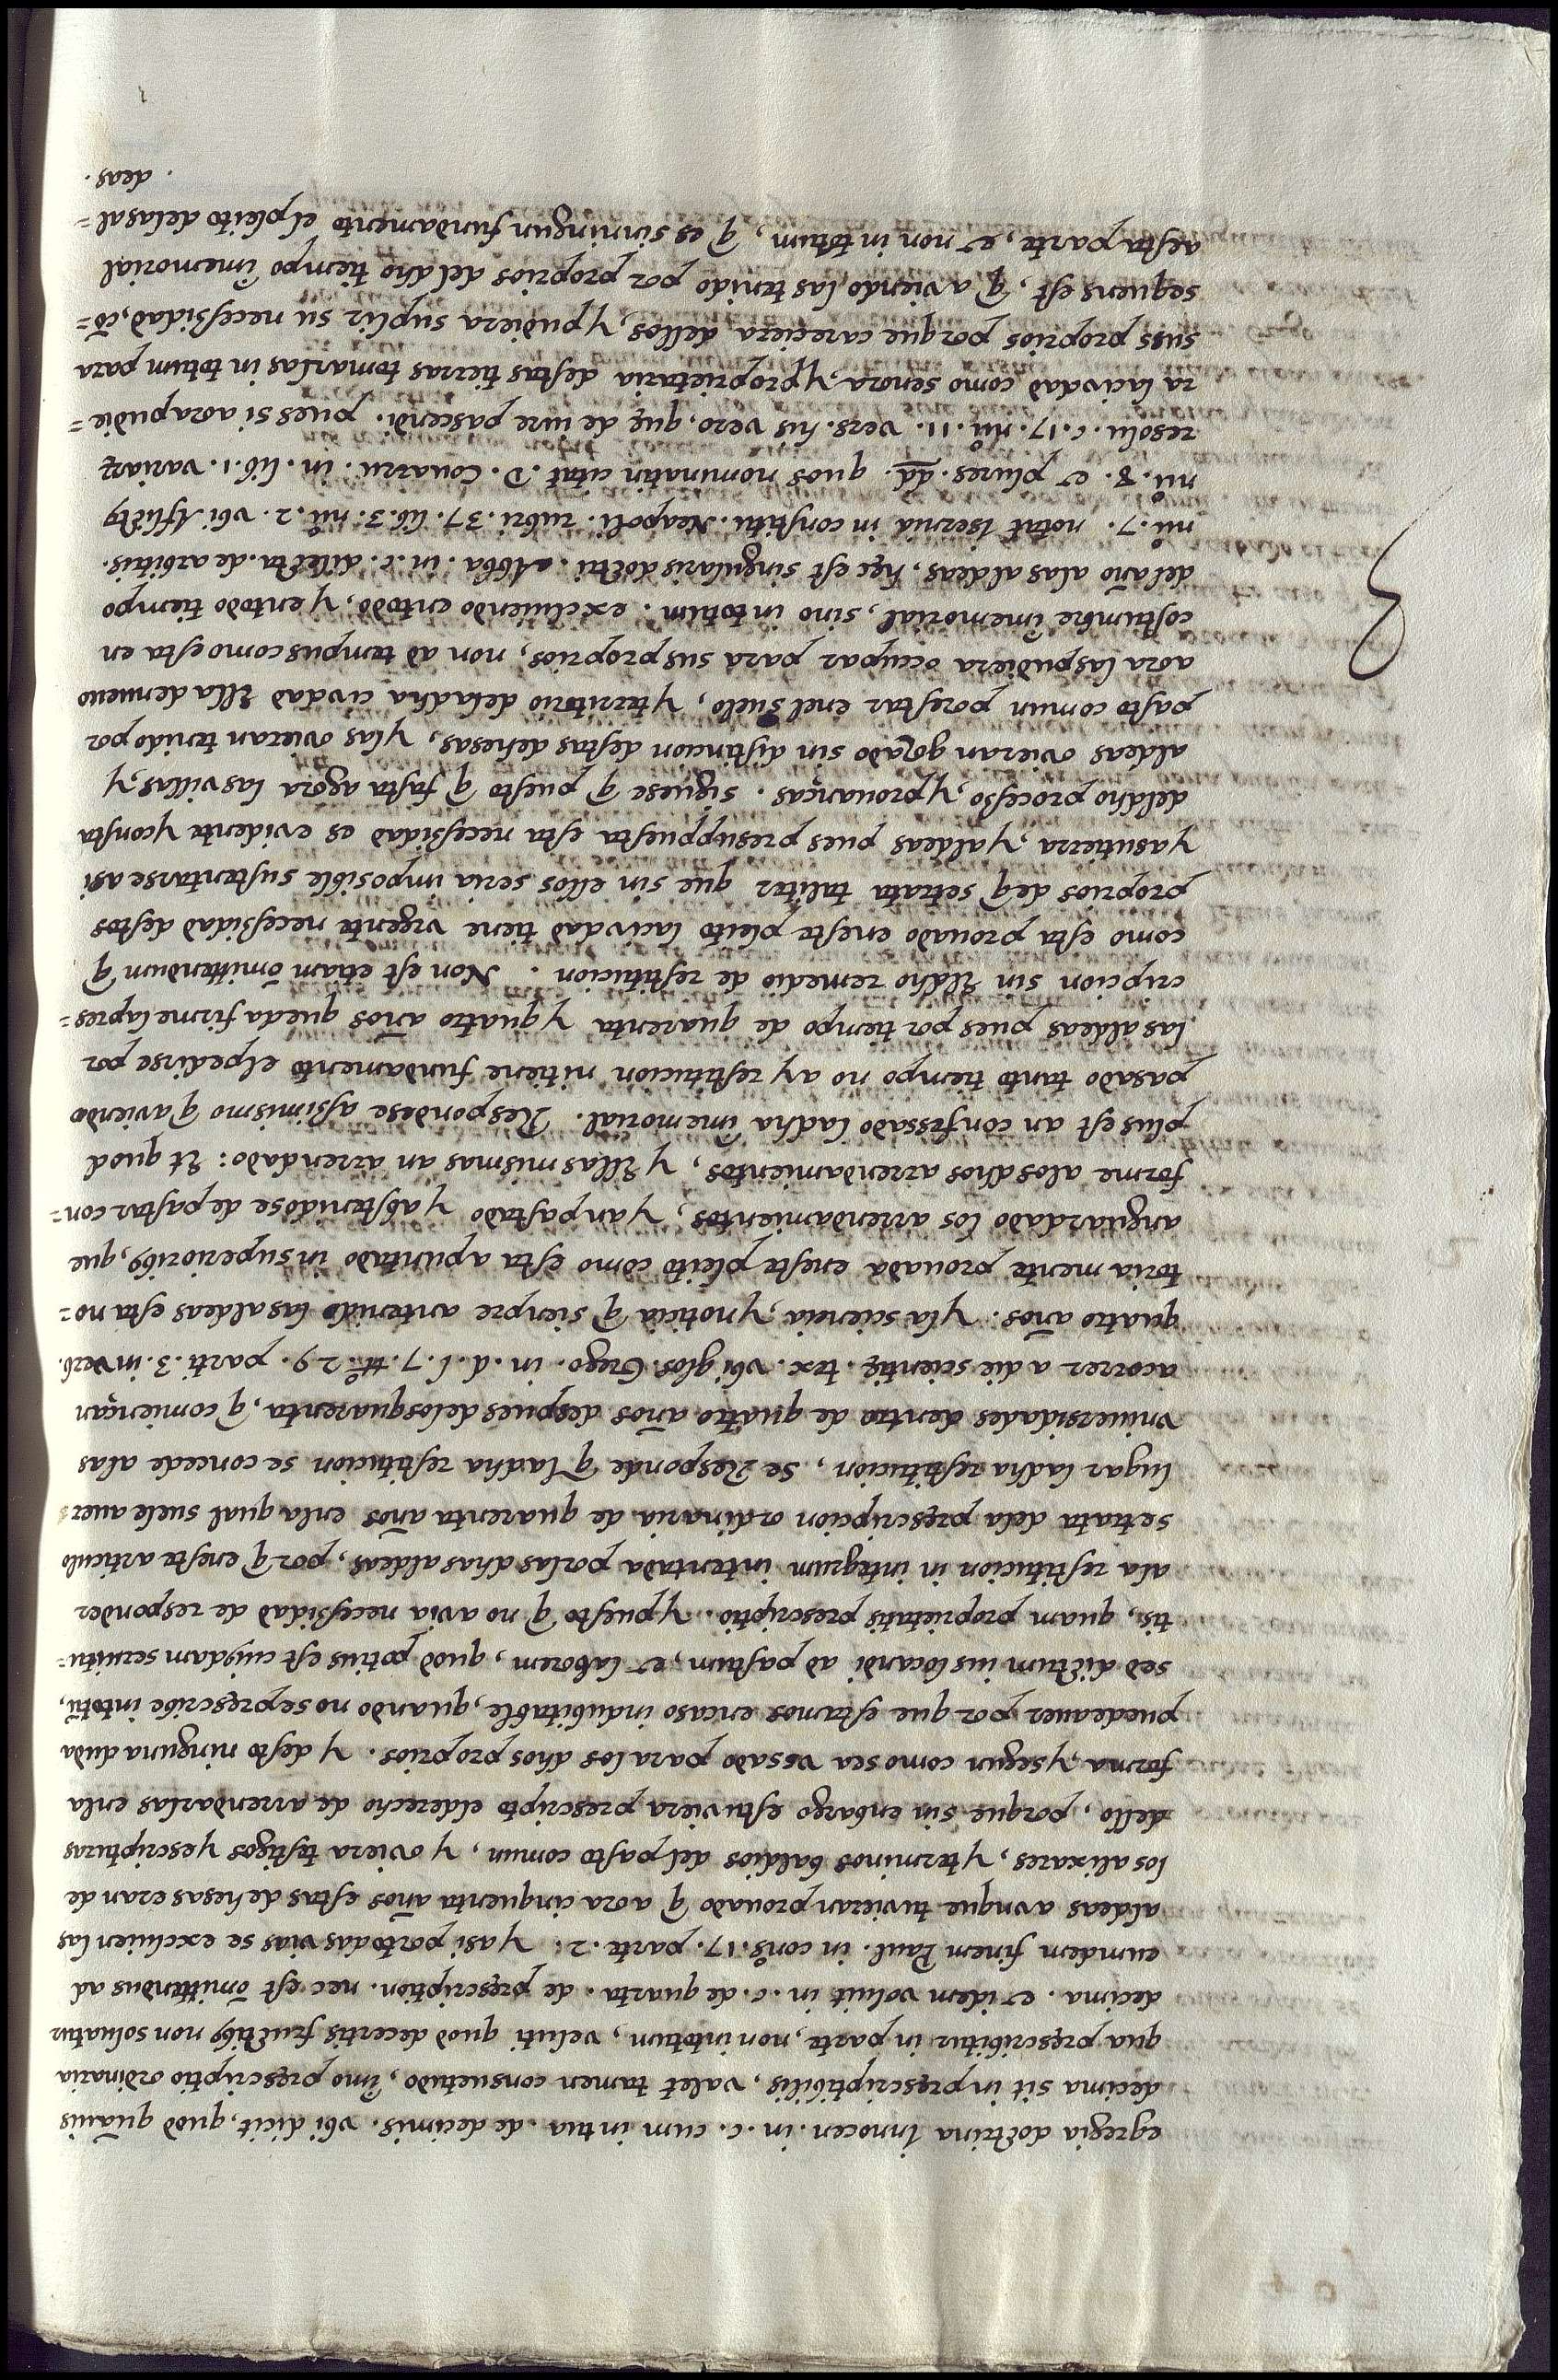 egregia doctrina Innocen. in. c. cum in tua. de decimis. vbi dicit, quod quãuis
decima sit inpręscriptibilis, valet tamen consuetudo, imo pręscriptio ordinaria
qua pręscribitur in parte, non intotum, veluti quod decertis fructibꝰ non soluatur
decima. et idem voluit in. c. de quarta. de pręscription. nec est õmittendus ad
eumdem finem Paul. in consº. 17. parte. 2. y asi portodas vias se excluien las
aldeas avnque tuvieran prouado q̃ aora cinquenta años estas dehesas eran de
los alixares, y terminos baldios del pasto comun, y oviera testigos yescripturas
dello, porque sin enbargo estuviera prescripto elderecho de arrendarlas enla
forma ysegun como sea vsado para los dhos proprios. y desto ninguna duda
puedeauer por que estamos encaso indubitable, quando no sepręscribe intotũ,
sed dictum ius locandi ad pastum, et laborem, quod potius est cuiusdam seruitu=
tis, quam proprietatis prescriptio. ypuesto q̃ no avia necessidad de responder
ala restitucion in integrum intentada porlas dhas aldeas, por q̃ eneste articulo
setrata dela pręscripcion ordinaria de quarenta años enla qual suele auer
lugar ladha restitucion, se Responde q̃ ladha restitucion se concede alas
vniuersidades dentro de quatro años despues delos quarenta, q̃ comiençan
acorrer a die scientię. tex. vbi glos. Grego. in. d. l. 7. ttº. 29. parti. 3. in verb.
quatro años: yla sciencia, ynoticia q̃ sienpre antenido las aldeas esta no=
toria mente prouada eneste pleito como esta apuntado in superioribꝰ, que
anguardado los arrendamientos, y an pastado y abstenidose de pastar con=
forme alos dhos arrendamientos, y Ellas mismas an arrendado: Et quod
plus est an confessado ladha inmemorial. Respondese assimismo q̃ aviendo
pasado tanto tiempo no ay restitucion nitiene fundamento elpedirse por
las aldeas pues por tiempo de quarenta y quatro años queda firme lapres=
cripcion sin Eldho remedio de restitucion. Non est etiam õmittendum q̃
como esta prouado eneste pleito lacivdad tiene vrgente necessidad destos
proprios deq̃ setrata taliter que sin ellos seria imposible sustentarse asi
yasutierra yaldeas pues presuppuesta esta necessidad es evidente yconsta
deldho processo, yprouanças. siguese q̃ puesto q̃ fasta agora lasvillas, y
aldeas ovieran gozado sin distincion destas dehesas, ylas ovieran tenido por
pasto comun porestar enel suelo, yterritorio deladha civdad Ella denueuo
aora laspudiera occupar para sus proprios, non ad tempus como esta en
costumbre inmemorial, sino intotum. excluiendo entodo, y entodo tiempo
delaño alas aldeas. hęc est singularis doctri. Abba. in. c. dilecta. de arbitris.
nuº. 7. notat Isernia in constitu. Neapoli. rubri. 37. lib. 3. nuº. 2. vbi Afflictꝰ
nuº. 8. et plures. dd. quos nominatin citat D. Couarru. in. lib. 1. variarꝫ
resolu. c. 17. nuº. 11. vers. his vero, quę de iure pascendi. pues si aorapudie=
ra lacivdad como senora, yproprietaria destas tierras tomarlas in totum para
suss proprios porque careciera dellos, ypudiera suplir su necessidad, cõ=
sequens est, q̃ aviendo las tenido por proprios deldho tiempo inmemorial
aesta parte, et non in totum, q̃ es sinningun fundamento elpleito delasal=
deas.